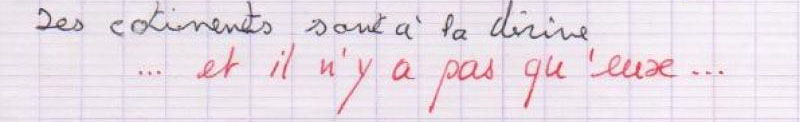 Les cotinents sont à la dirive
... et il n'y a pas qu'eux...